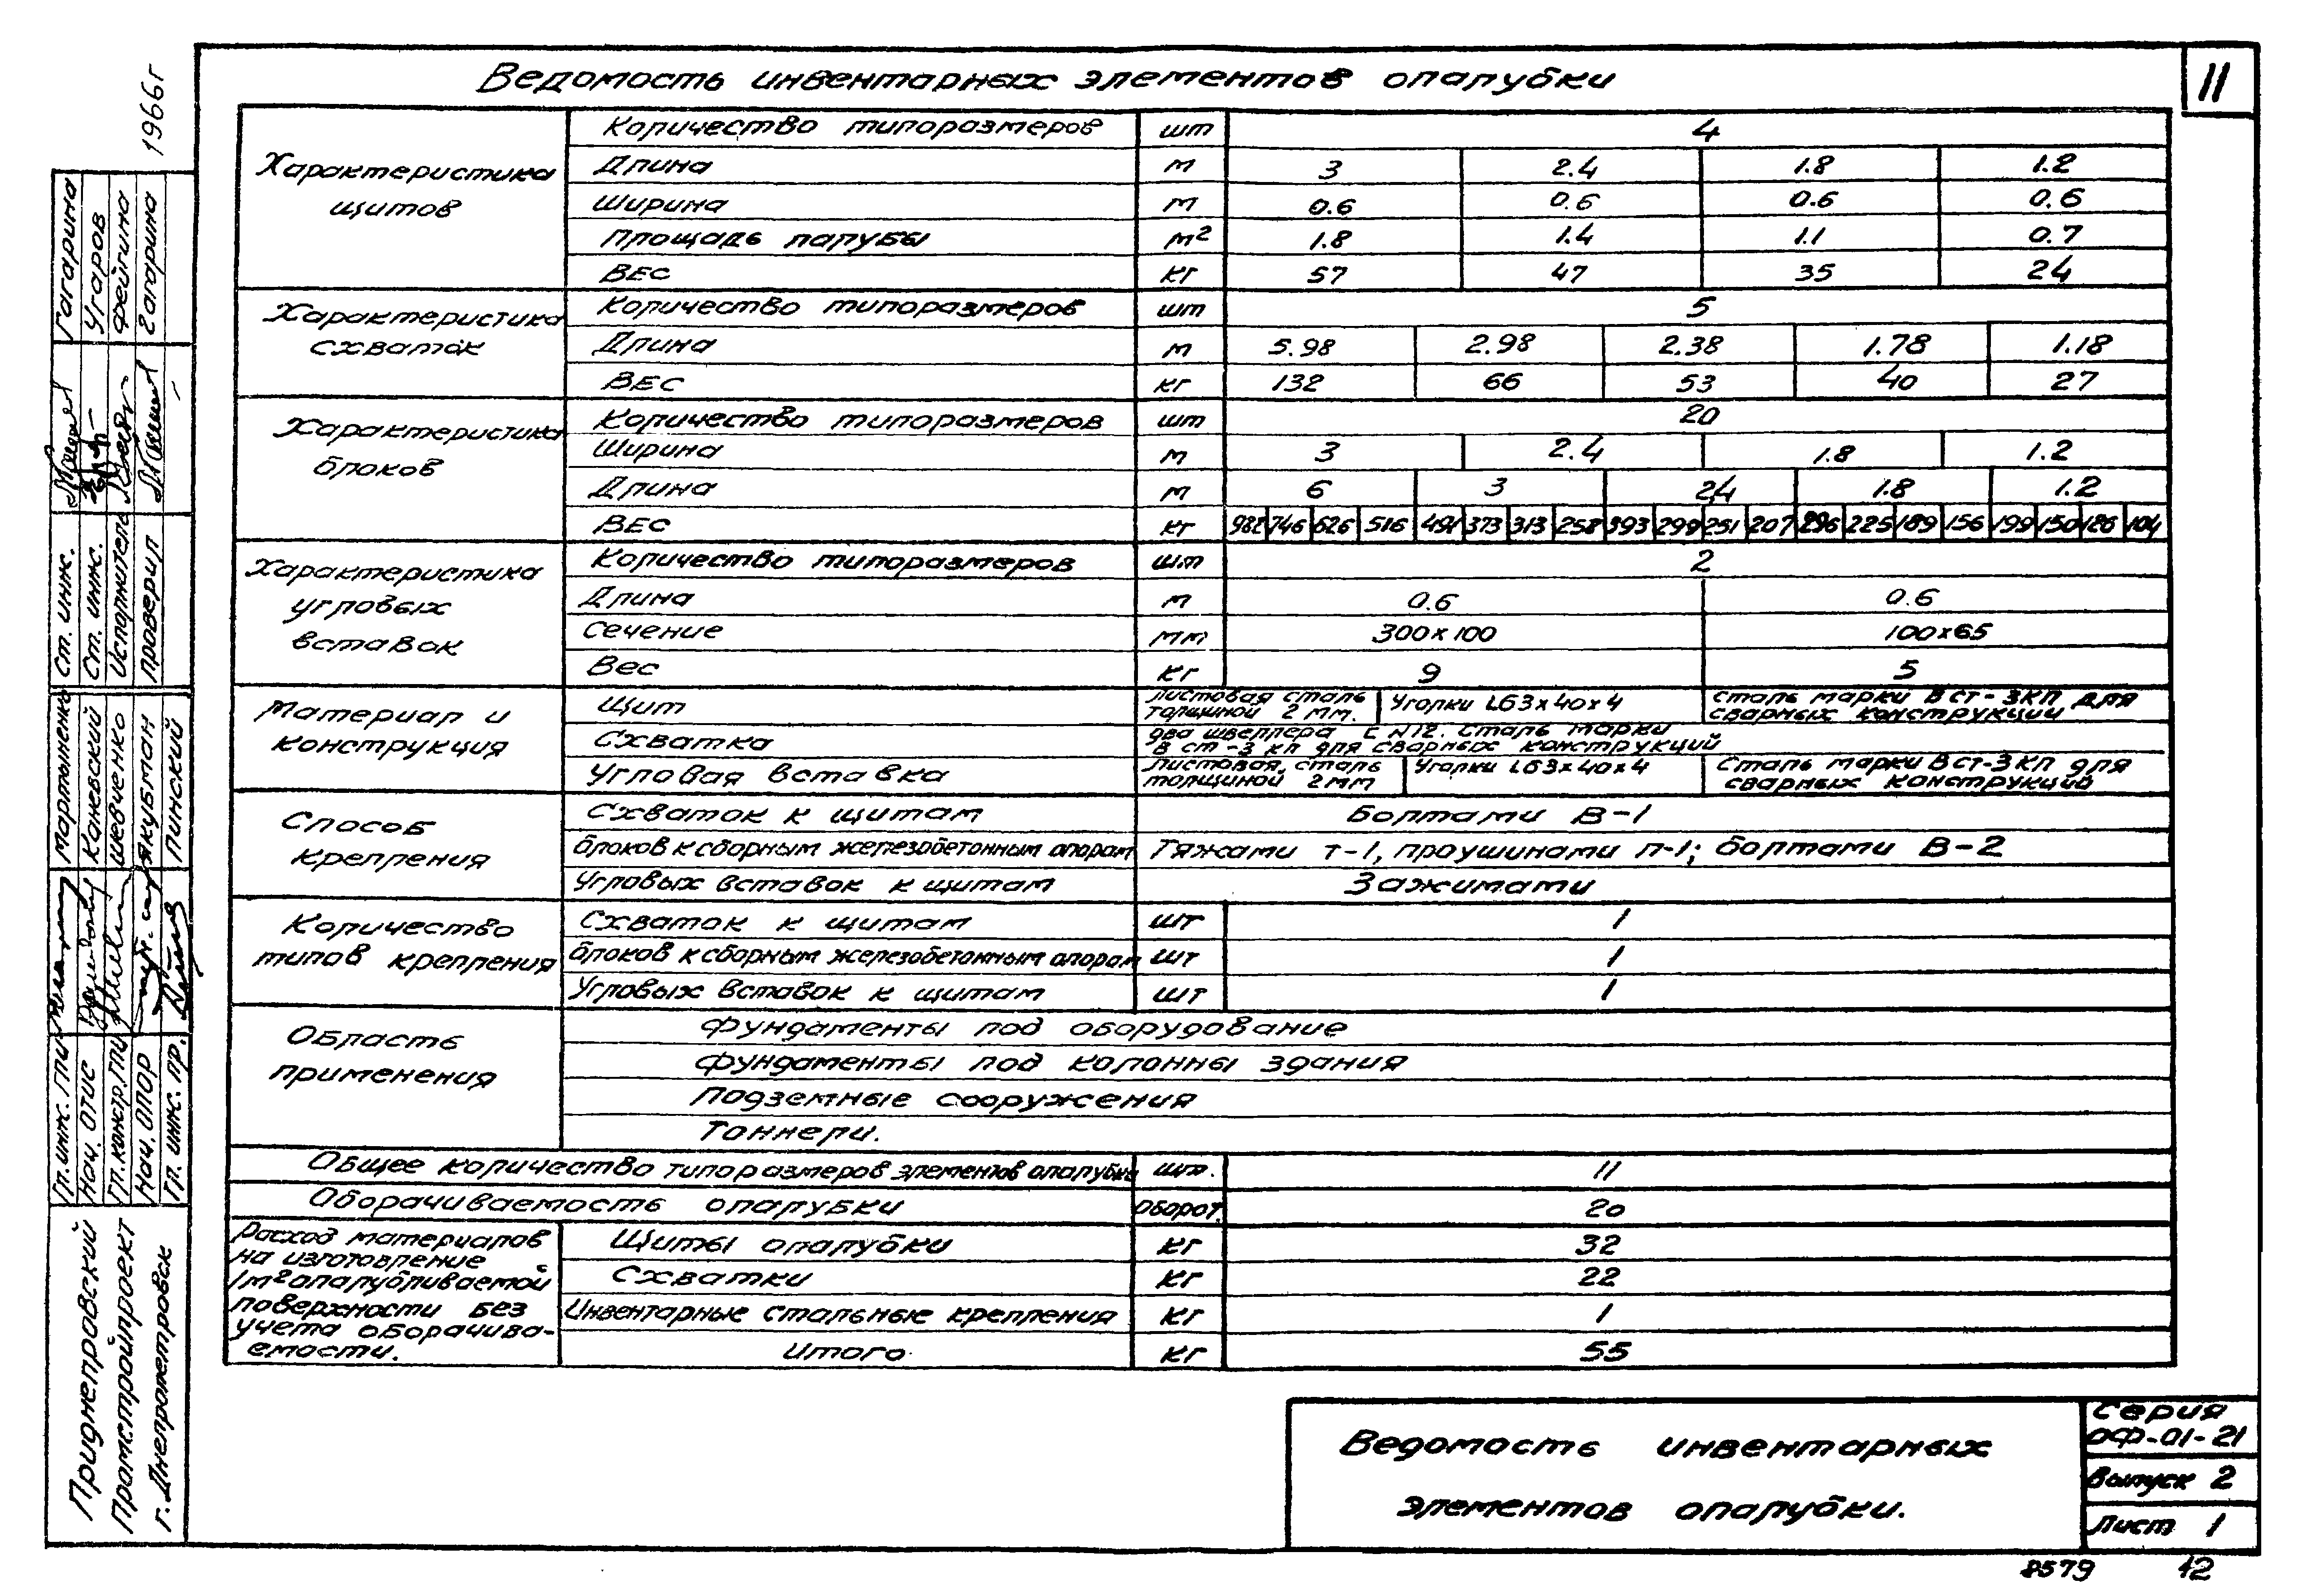 11
Ведомость инвентарных элементов опалубки
Характеристика щитов
Количество типоразмеров шт 4
Длина м 3 2.4 1.8 1.2
Ширина м 0.6 0.6 0.6 0.6
Площадь палубы м² 1.8 1.4 1.1 0.7
Вес кг 57 47 35 24
Характеристика схваток
Количество типоразмеров шт 5
Длина м 5.98 2.98 2.38 1.78 1.18
Вес кг 132 66 53 40 27
Характеристика блоков
Количество типоразмеров шт 20
Ширина м 3 2.4 1.8 1.2
Длина м 6 3 2.4 1.8 1.2
Вес кг 982 746 626 516 491 373 313 258 393 299 251 207 296 225 189 156 199 150 126 104
Характеристика угловых вставок
Количество типоразмеров шт 2
Длина м 0.6 0.6
Сечение мм 300×100 100×65
Вес кг 9 5
Материал и конструкция
Щит
Листовая сталь толщиной 2 мм.
Уголки L63×40×4
Сталь марки В ст-3кп для сварных конструкций
Схватка
два швеллера [ N12. Сталь марки
В ст-3 кп для сварных конструкций
Угловая вставка
Листовая сталь толщиной 2мм
Уголки L63×40×4
Сталь марки В ст-3 кп для сварных конструкций
Способ крепления
Схваток к щитам Болтами В-1
блоков к сборным железобетонным опорам Тяжами т-1, проушинами п-1; болтами В-2
Угловых вставок к щитам Зажимами
Количество типов крепления
Схваток к щитам шт 1
блоков к сборным железобетонным опорам шт 1
Угловых вставок к щитам шт 1
Область применения
Фундаменты под оборудование
Фундаменты под колонны здания
Подземные сооружения
Тоннели.
Общее количество типоразмеров элементов опалубки шт. 11
Оборачиваемость опалубки оборот. 20
Расход материалов
на изготовление
1м² опалубливаемой
поверхности без
учета оборачива-
емости.
Щиты опалубки кг 32
Схватки кг 22
Инвентарные стальные крепления кг 1
Итого кг 55
Ведомость инвентарных
элементов опалубки.
Серия
ОФ-01-21
Выпуск 2
Лист 1
8579 12
Приднепровский
Промстройпроект
г. Днепропетровск
Гл. инж. ГПИ Мартыненко
Нач. ОТИС Каневский
Гл. констр. ГПИ Шевченко
Нач. ОПОР Якубман
Гл. инж. пр. Пинский
Ст. инж. Гагарина
Ст. инж. Угаров
Исполнитель Фейгина
Проверил Гагарина
1966г